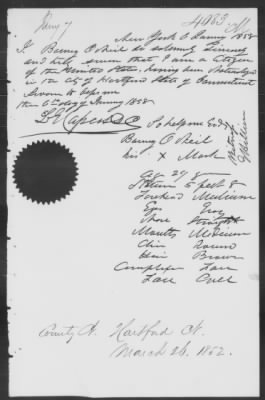 4063
New York 6 Janny 1858
I Barny O Neil do solemnly sincerely
and truly swear that I am a Citizen
of the United States. having been Naturalized
in the City of Hartford State of Connecticut
Sworn to before me
the 6th day of Janury 1858
So help me God
Barny O Neil
his x Mark
Witness
Age 27 8
Stature 5 feet 8
Forehead Medium
Eyes Grey
Nose Straight
Mouth Medium
Chin Round
Hair Brown
Complexion Fair
Face Oval
County Ct. Hartford Ct.
March 26. 1852.